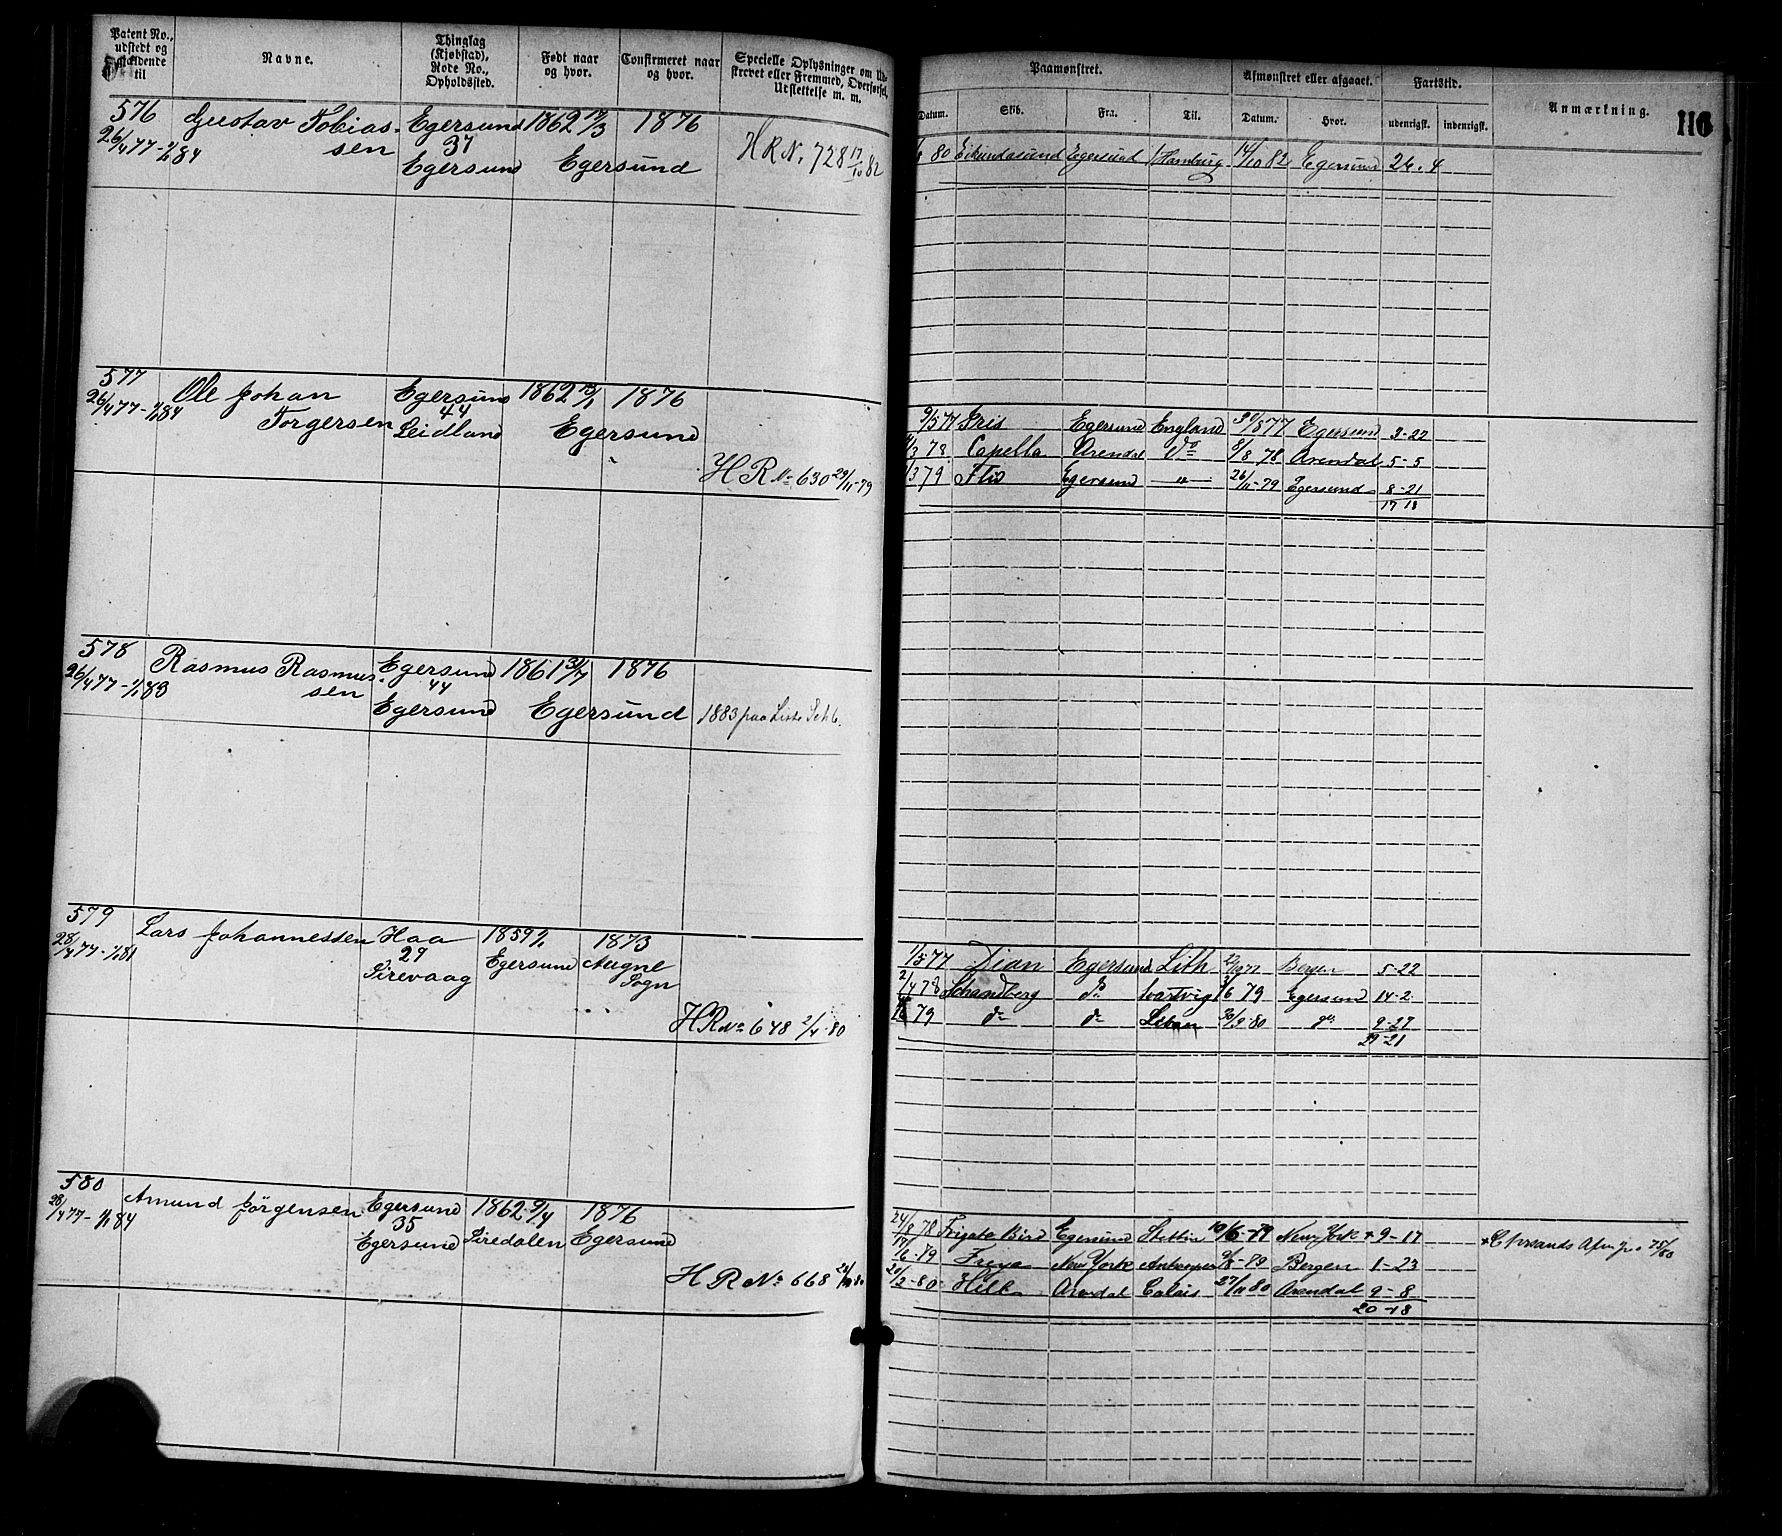 Patent No.,
udstedt og
gjældende
til
Navne.
Thinglag
(Kjøbstad),
Rode No.,
Opholdssted.
Født naar
og hvor.
Confirmeret naar
og hvor.
Specielle Oplysninger om Ud-
skrevet eller Fremmed, Overførsel,
Udslettelse m. m.
Paamønstret.
Datum.
Skib.
Fra.
Til.
Afmønstret eller afgaaet.
Datum.
Hvor.
Fartstid.
udenrigsk.
indenrigsk.
Anmærkning.
116
576 Gustav Tobias- Egersund 1862 1876
26/4 77-1/1 84 sen 37
Egersund Egersund HR No. 728 17/10 82
80 Eikundasund Egersund Hamburg 14/10 82 Egersund 26. 4
577 Ole Johan Egersund 1862 1876
26/4 77-1/1 84 Torgersen 44
Leidland Egersund
HR No 630 29/11-79
9/5 77 Iris Egersund England 30/8 77 Egersund 3-22
78 Capella Arendal do 8/8 78 Arendal 5-5
79 Egersund " 26/11-79 Egersund 8-21
17 18
578 Rasmus Rasmus- Egersund 1861 31/7 1876
26/4 77-1/1 83 sen 44
Egersund Egersund 1883 paa Liste
579 Lars Johannessen Haa 1859 1873
28/4 77-1/1 81 29 Egersund Augne
Sirevaag Sogn
HR No 648 2/4-80
1/5 77 Dian Egersund Lith 77 Bergen 5-22
2/4 78 Schandberg do 79 Egersund 14-2
79 do do 80 do 9-27
29-21
580 Amund Jörgensen Egersund 1862 9/4 1876
28/4 77-1/1 84 35 Siredalen Egersund
Egersund
HR No 668 80
24/8 78 Fregata Bird Egersund Stettin 10/6-79 New York + 9-17
17/6-79 Freya New York Antwerpen 79 Bergen 1-23
2-80 Arendal Calais 27/11 80 Arendal 9-8
20-18